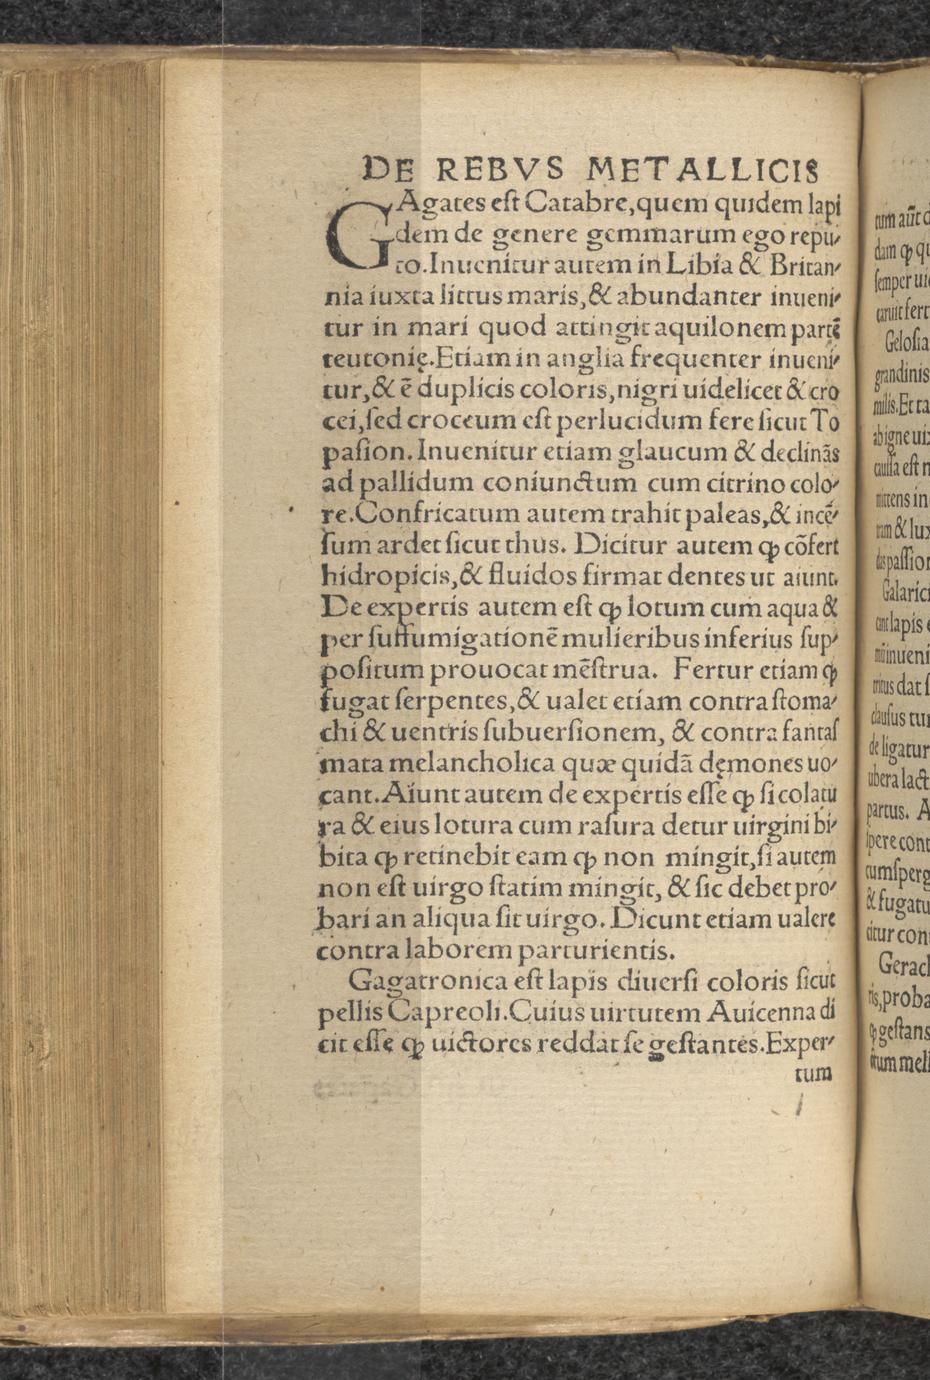 DE REBVS METALLICIS
GAgates eſt Catabre,quem quidem lapi
dem de genere gemmarum ego repu⸗
to.Inuenitur autem in Libia & Britan⸗
nia iuxta littus maris,& abundanter inueni⸗
tur in mari quod attingit aquilonem partē
teutonię.Etiam in anglia frequenter inueni⸗
tur,& ē duplicis coloris,nigri uidelicet & cro
cei,ſed croceum eſt perlucidum fere ſicut To
paſion. Inuenitur etiam glaucum & declinās
ad pallidum coniunctum cum citrino colo⸗
re.Confricatum autem trahit paleas,& incē⸗
ſum ardet ſicut thus. Dicitur autem ꝙ cōfert
hidropicis,& fluidos firmat dentes ut aiunt.
De expertis autem eſt ꝙ lotum cum aqua &
per ſuffumigationē mulieribus inferius ſup⸗
poſitum prouocat mēſtrua. Fertur etiam ꝙ
fugat ſerpentes,& ualet etiam contra ſtoma⸗
chi & uentris ſubuerſionem, & contra fantaſ
mata melancholica quæ quidā dęmones uo⸗
cant.Aiunt autem de expertis eſſe ꝙ ſi colatu
ra & eius lotura cum raſura detur uirgini bi⸗
bita ꝙ retinebit eam ꝙ non mingit,ſi autem
non eſt uirgo ſtatim mingit, & ſic debet pro⸗
bari an aliqua ſit uirgo. Dicunt etiam ualere
contra laborem parturientis.
Gagatronica eſt lapis diuerſi coloris ſicut
pellis Capreoli.Cuius uirtutem Auicenna di
cit eſſe ꝙ uictores reddat ſe geſtantes.Exper⸗
tum
tum aūt
ſemper
Geloſia
grandinis
milis.Et
eſt
& lux
Galarici
lapis
inueni
dat
de ligatur
ubera lact
partus. A
cumſperg
& fugatu
citur con
Gerach
ris,proba
ꝙ geſtans